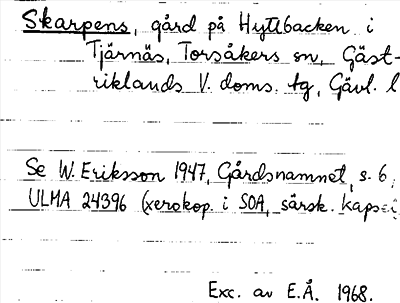 Skarpens, gård på Hyttbacken i
Tjärnäs, Torsåkers sn, Gäst-
riklands V. doms. tg, Gävl. l
Se W. Eriksson 1947, Gårdsnamnet, s. 6,
ULMA 24396 (xerokop. i SOA, särsk.
Exc. av E.Å. 1968.